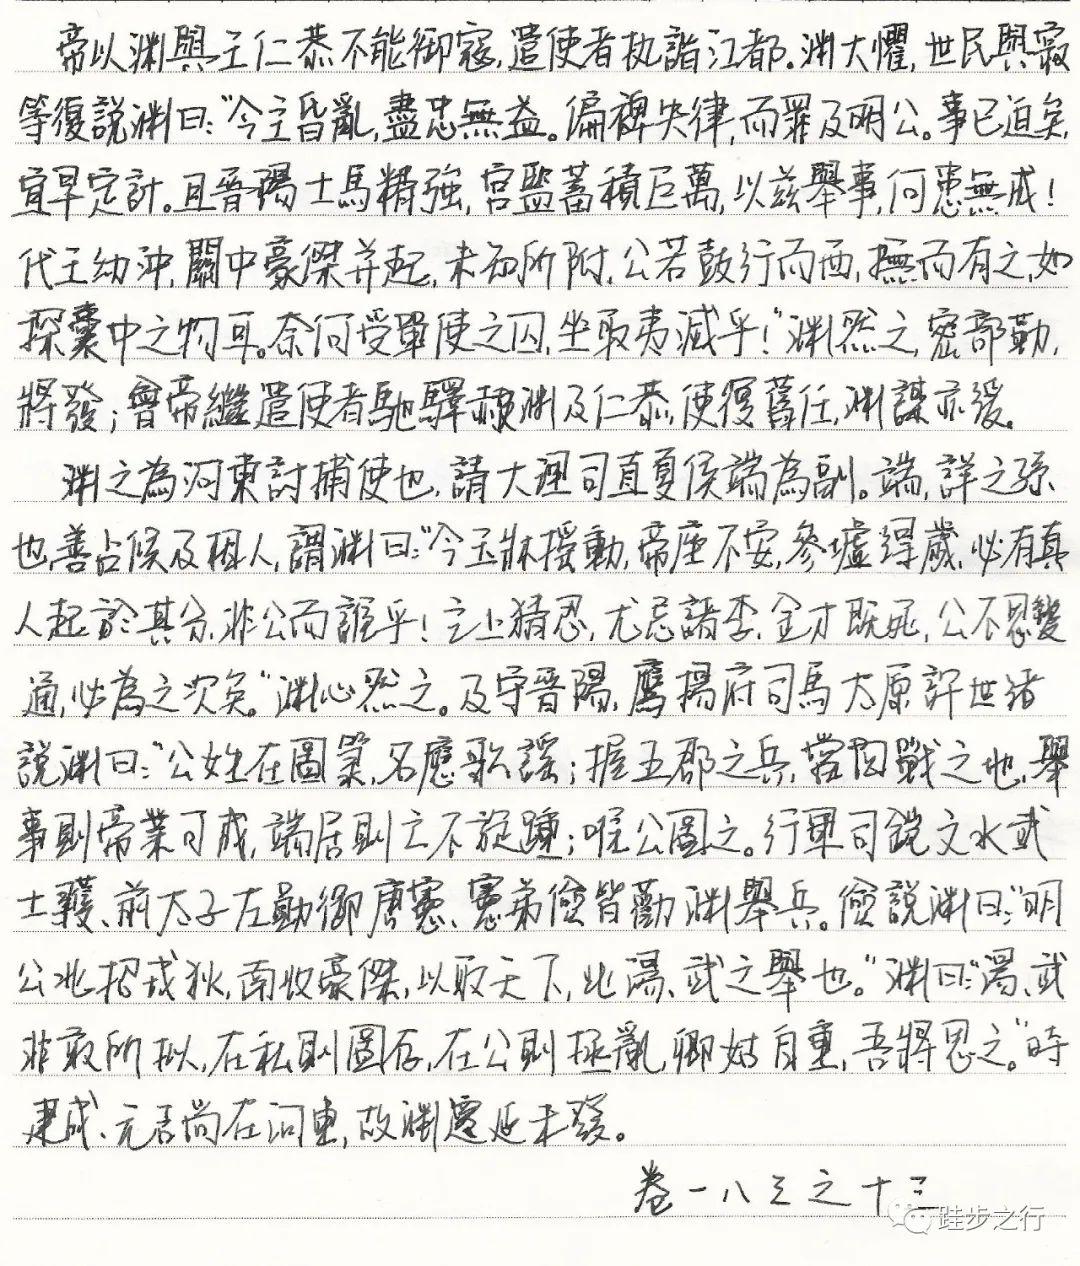 帝以淵與王仁恭不能御寇，遣使者执詣江都。淵大懼，世民與寂
等復說淵曰：“今主昏亂，盡忠無益。偏裨失律，而罪及明公。事已迫矣，
宜早定計。且晉陽士馬精強，宮監蓄積巨萬，以兹舉事，何患無成！
代王幼沖，關中豪傑并起，未知所附，公若鼓行而西，撫而有之，如
探囊中之物耳。奈何受單使之囚，坐取夷滅乎！”淵然之，密部勒，
將發；會帝繼遣使者馳驛赦淵及仁恭，使復舊任，淵謀亦緩。
淵之為河東討捕使也，請大理司直夏侯端為副。端，詳之孫
也，善占候及相人，謂淵曰：“今玉牀搖動，帝座不安，參墟得歲，必有真
人起於其分，非公而誰乎！主上猜忍，尤忌諸李，金才既死，公不思變
通，必為之次矣。”淵心然之。及守晉陽，鷹揚府司馬太原許世緒
說淵曰：“公姓在圖箓，名應歌謠；握五郡之兵，當四戰之地，舉
事則帝業可成，端居則亡不旋踵；唯公圖之。行軍司鎧文水武
士彠、前太子左勳衛唐憲、憲弟儉皆勸淵舉兵。儉說淵曰：“明
公北招戎狄，南收豪傑，以取天下，此湯、武之舉也。”淵曰：“湯、武
非敢所拟，在私則圖存，在公則拯亂，卿姑自重，吾將思之。”時
建成、元吉尚在河東，故淵遷延未發。
卷一八三之十三
跬步之行